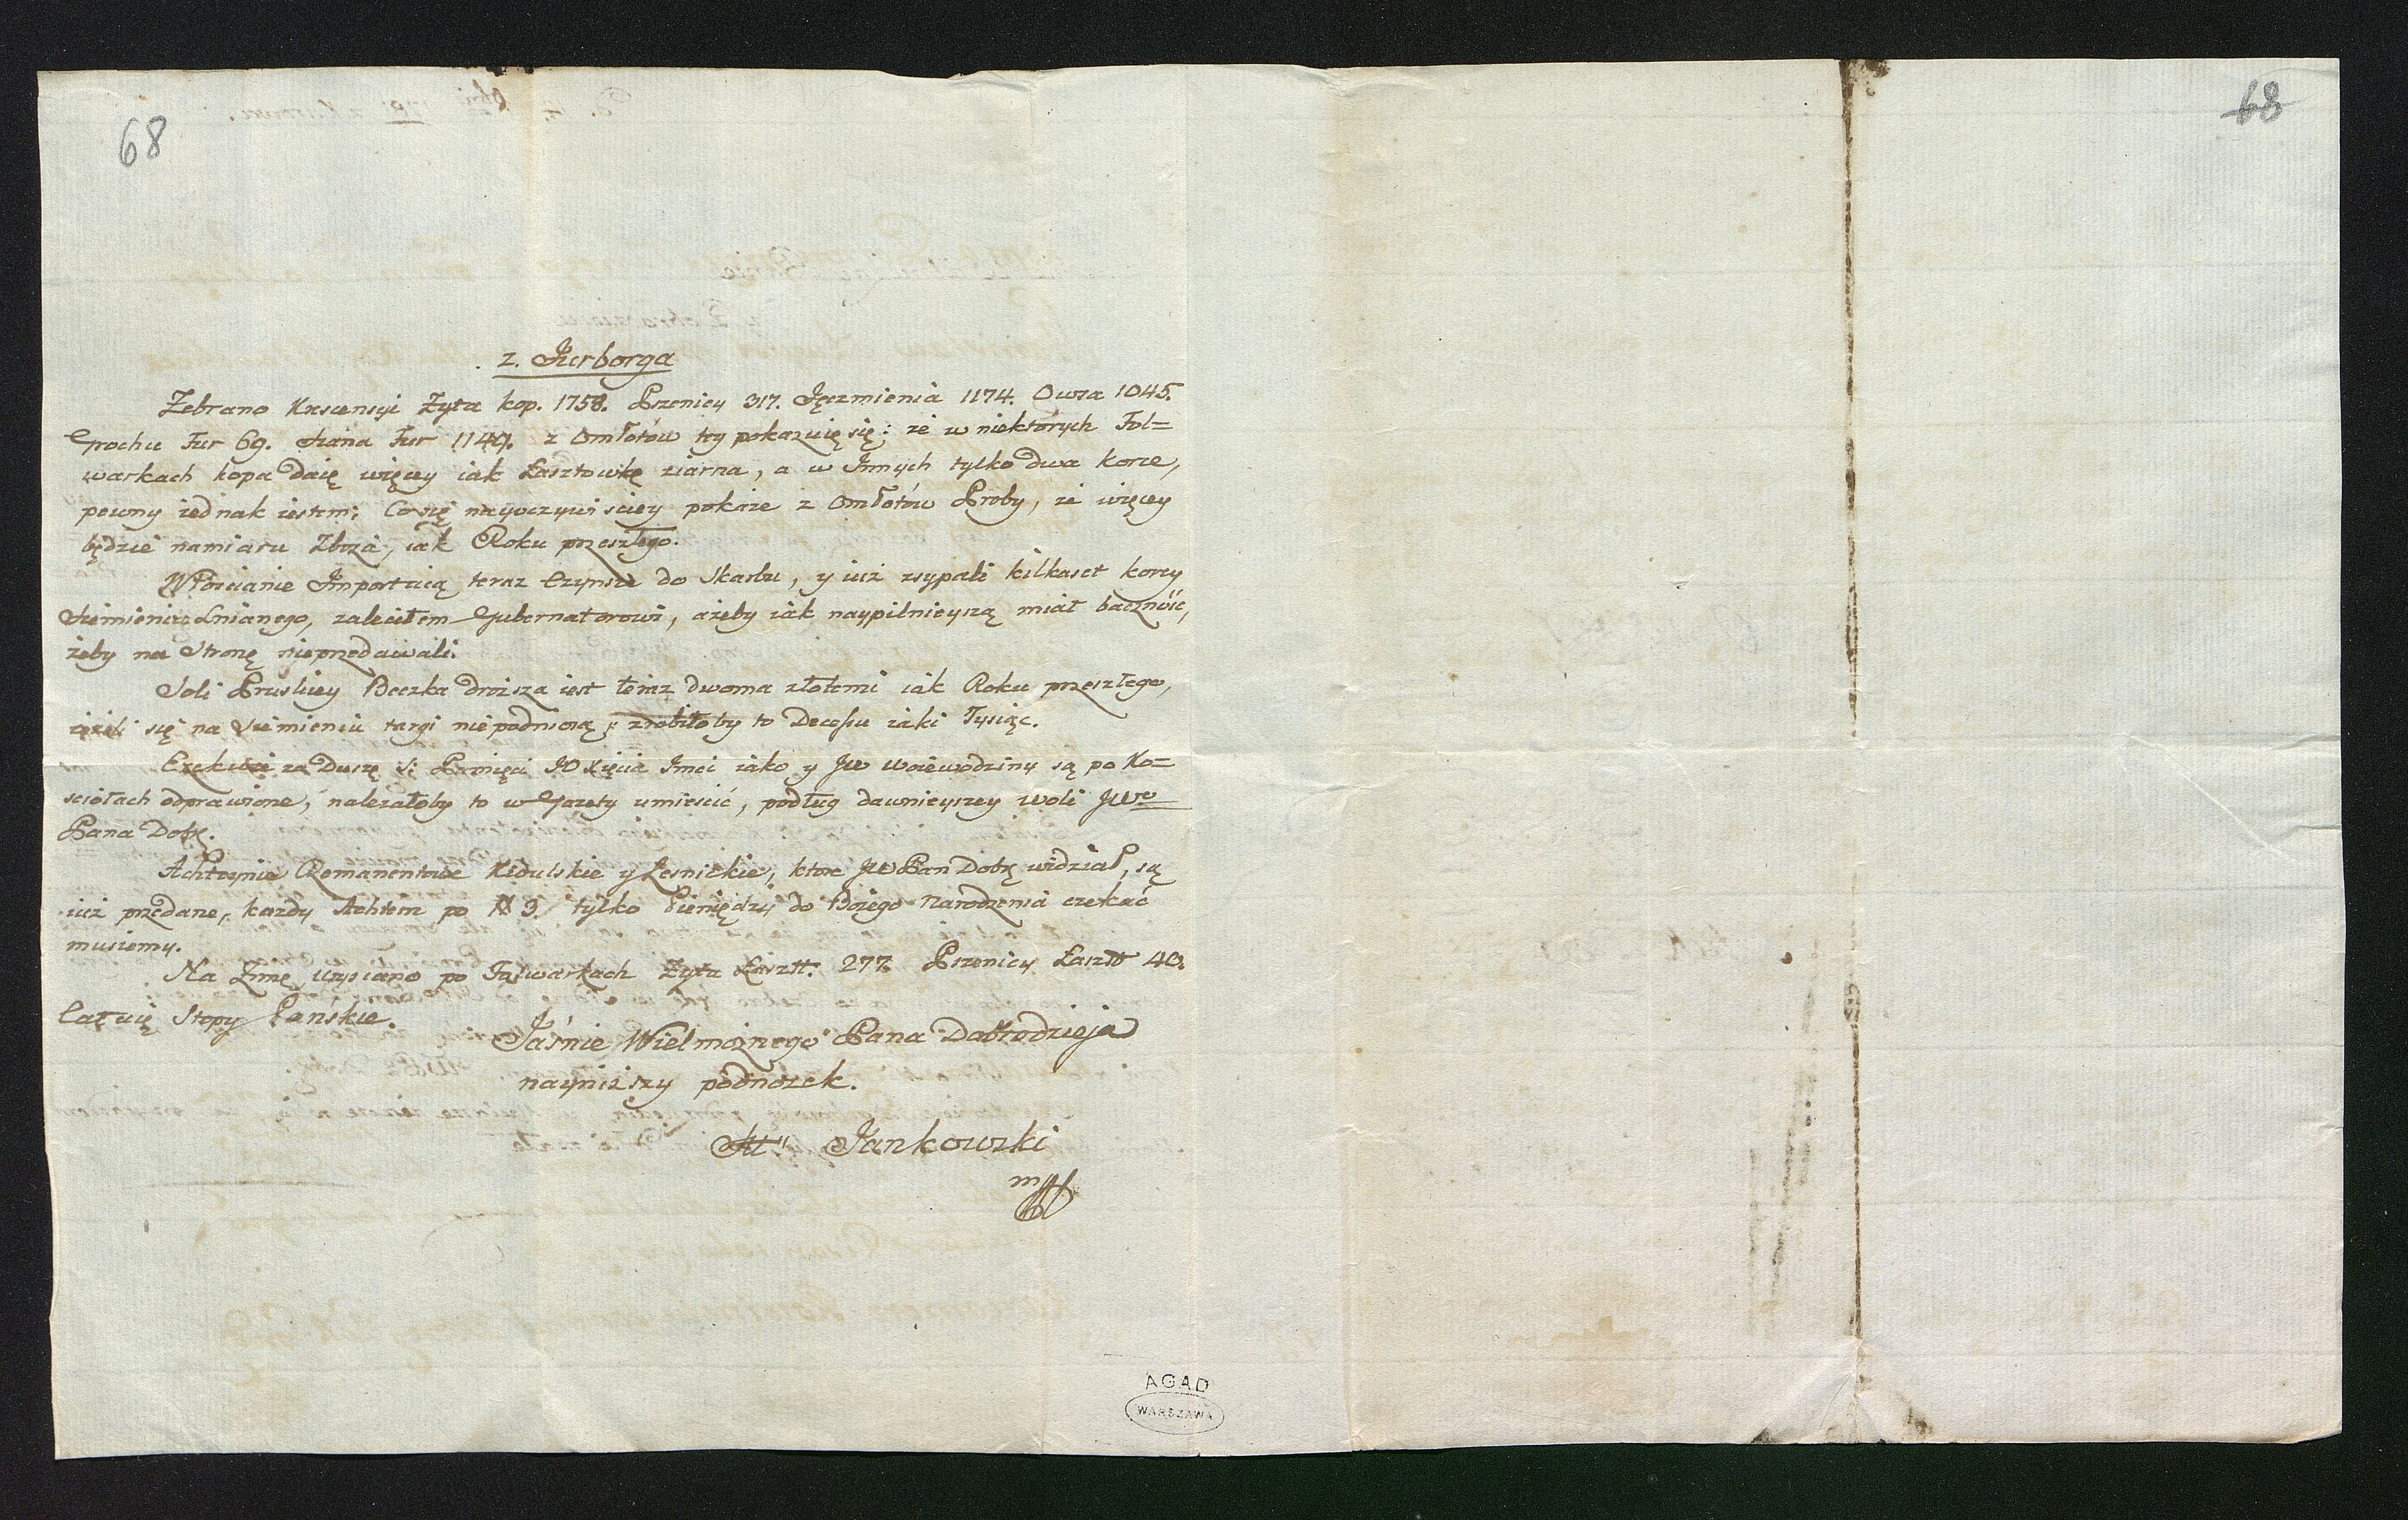 68
68
z. Jurborga
Zebrano Krscensyi Zyta kop. 1758. Pszenicy 317. Jęczmienia 1174. Owsa 1045.
Grochu Fur 69. Siana Fur 1149. z Omłotów try pokazuię się; że w niektórych Fol=
warkach kopa daię więcey iak Łasztowkę ziarna, a w Innych tylko dwa korce,
pewny iednak iestem; Co się nayoczywiściey pokaże z Omłotów Proby, że więcey
będzie namiaru Zboża, iak Roku przeszłego.
Włoscianie Importuią teraz Czynsze do Skarbu, y iuż zsypali kilkaset korcy
Siemienia Lnianego, zaleciłem Gubernatorowi, ażeby iak naypilnieyszą miał baczność,
żeby na Stronę nieprzedawali.
Soli Pruskiey Beczka droższa iest teraz dwoma złotemi iak Roku przeszłego,
ieżeli się na Siemieniu targi nie podniosą, zrobiłoby to Decessu iaki Tysiąc.
Exekwie za Duszę S. Pamięci JO Xięcia Imci iako y JW Woiewodziny są po Ko=
sciołach odprawione, należałoby to w Gazety umiescić, podług dawnieyszey woli JWo
Pana Dobr.
Achtynie Romanentowe Kidulskie y Lesnickie, ktore JW Pan Dobr widział, są
iuż przedane, kazdy Achtein po # 9. tylko Pieniędzy do Bożego Narodzenia czekać
musiemy.
Na Zimę wysiano po Folwarkach Zyta Łasztt. 277. Pszenicy Łaszt 40.
Całuię Stopy Pańskie.
Jaśnie Wielmożnego Pana Dobrodzieja
nayniższy podnożek.
Jankowski
AGAD
WARSZAWA